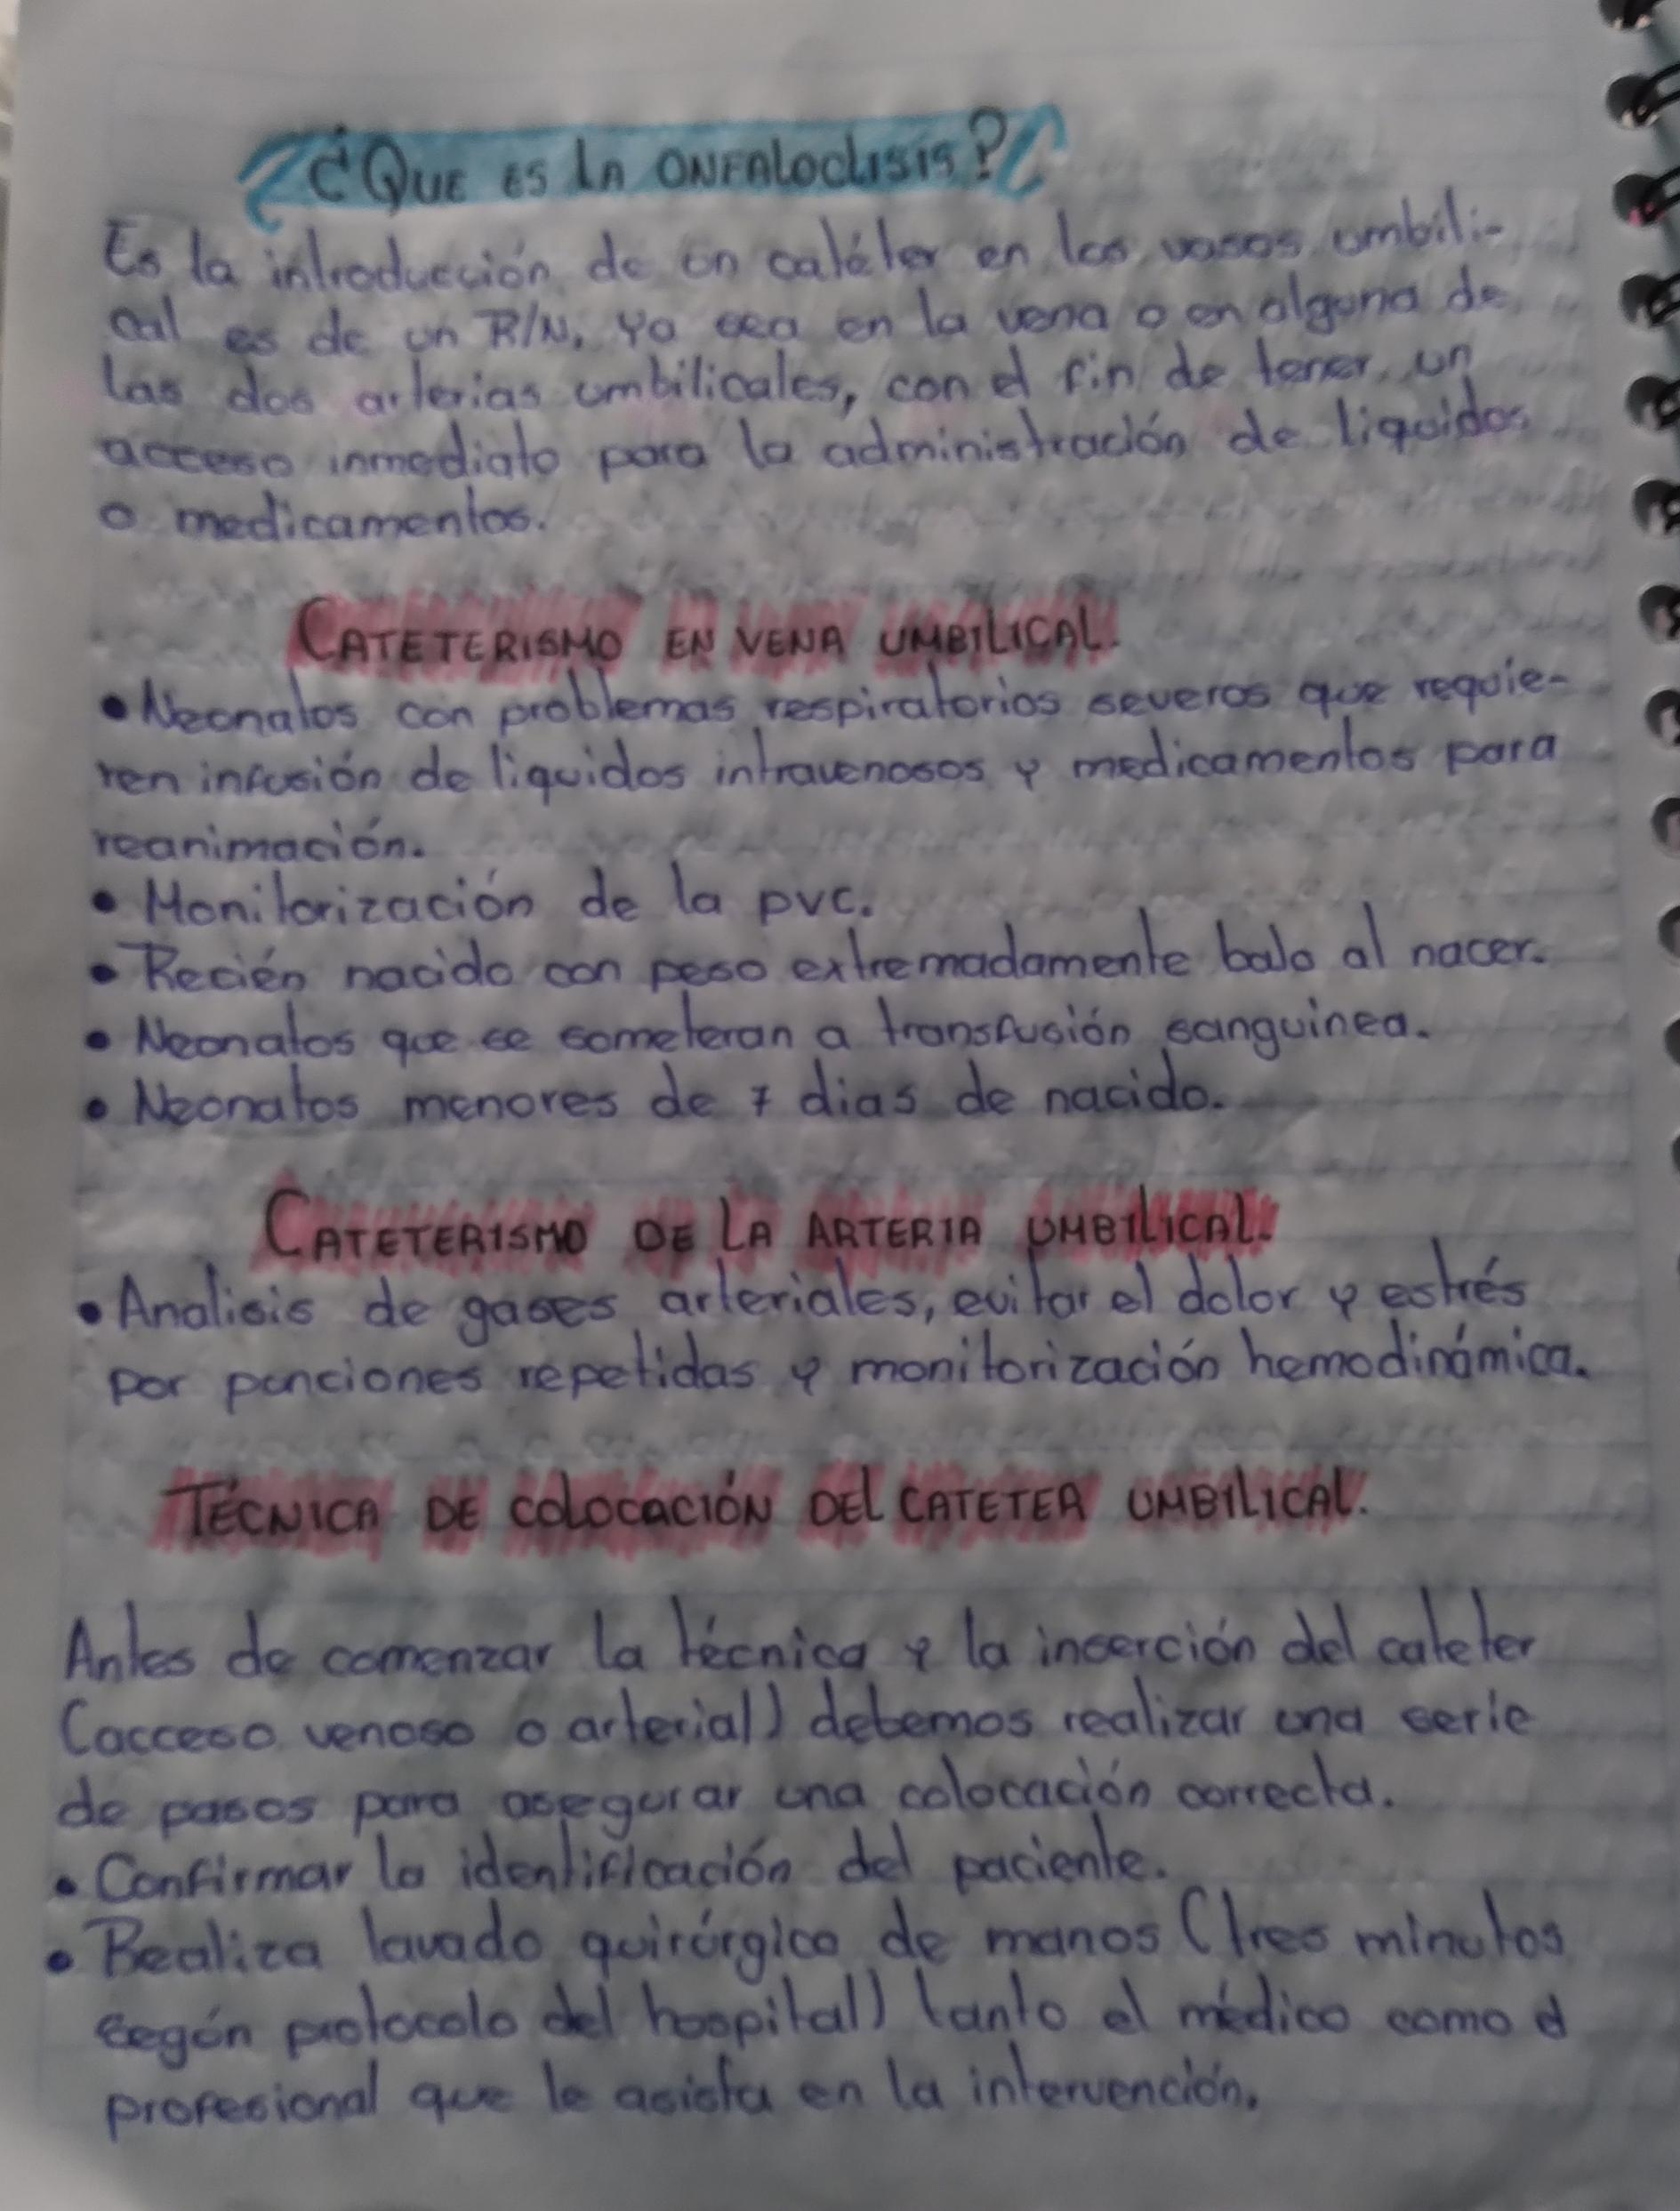 ¿QUE ES LA ONFALOCLISIS?
Es la introducción de un catéter en los vasos umbili-
cal es de un R/N, ya sea en la vena o en alguna de
las dos arterias umbilicales, con el fin de tener un
acceso inmediato para la administración de liquidos
o medicamentos.
CATETERISMO EN VENA UMBILICAL.
• Neonatos con problemas respiratorios severos que requie-
ren infusión de liquidos intravenosos y medicamentos para
reanimación.
• Monitorización de la pvc.
• Recién nacido con peso extremadamente bajo al nacer.
• Neonatos que se someteran a transfusión sanguinea.
• Neonatos menores de 7 dias de nacido.
CATETERISMO DE LA ARTERIA UMBILICAL.
• Analisis de gases arteriales, evitar el dolor y estrés
por punciones repetidas y monitorización hemodinámica.
TÉCNICA DE COLOCACIÓN DEL CATETER UMBILICAL.
Antes de comenzar la técnica y la inserción del cateter
(acceso venoso o arterial) debemos realizar una serie
de pasos para asegurar una colocación correcta.
• Confirmar la identificación del paciente.
• Realiza lavado quirúrgico de manos (tres minutos
según protocolo del hospital) tanto el médico como el
profesional que le asista en la intervención.